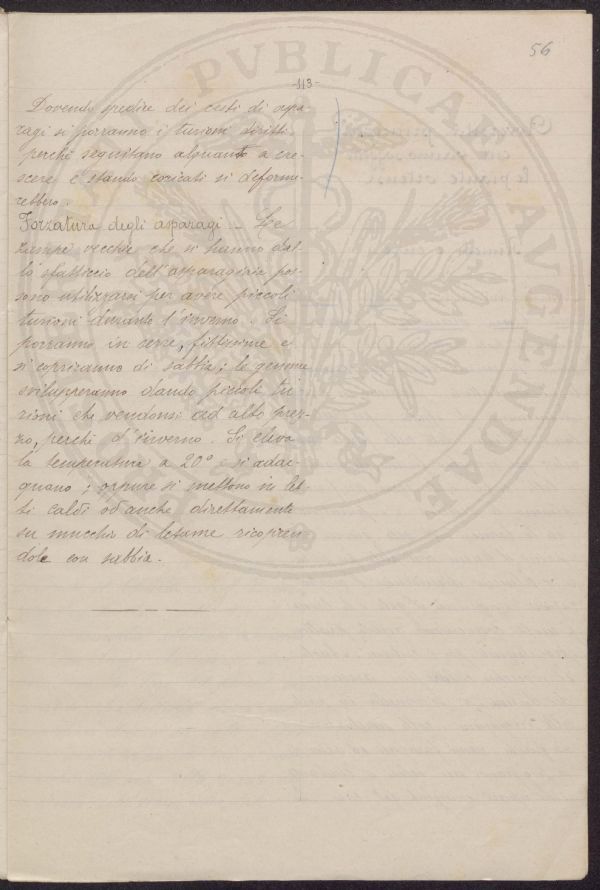 56
-113-
Dovendo spedire dei cesti di aspa-
ragi si porranno i turioni diritti
perchè seguitano alquanto a cre-
scere e stando coricati si deforme-
rebbero.
Forzatura degli asparagi - Le
zampe vecchie che si hanno dal-
lo sfatticcio dell'asparagiaia pos-
sono utilizzarsi per avere piccoli
turioni durante l'inverno. Si
porranno in serre, fittissime e
si copriranno di sabbia; le gemme
svilupperanno dando piccoli tu-
rioni che vendonsi ad alto prez-
zo, perchè d'inverno. Si eleva
la temperatura a 20° e si adac-
quano; oppure si mettono in let-
ti caldi od anche direttamente
su mucchi di letame ricopren-
dole con sabbia.
PVBLICAE
AVGENDAE